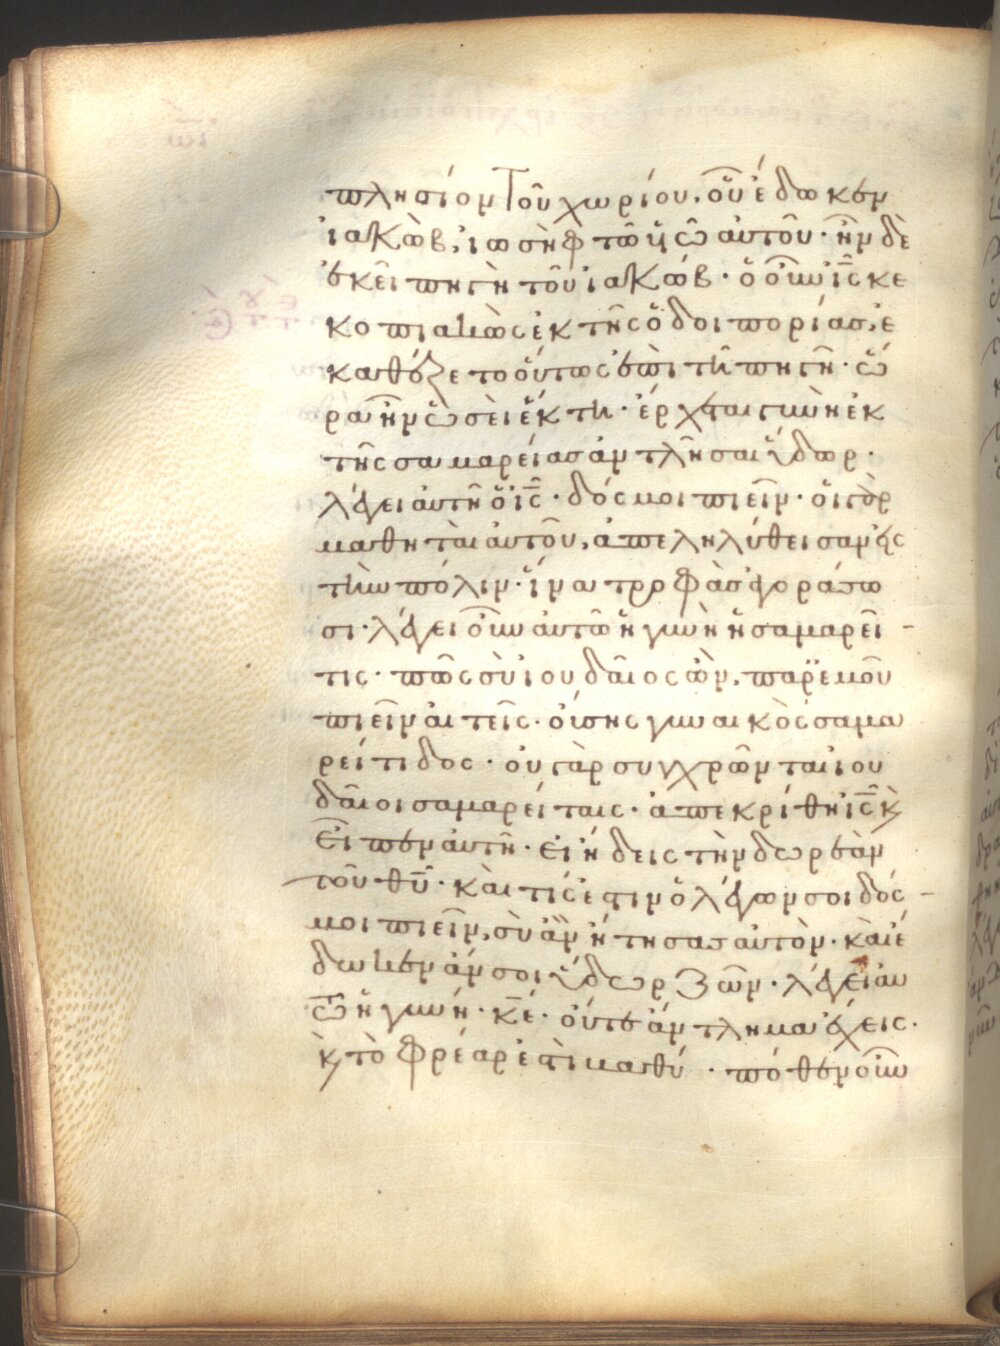 πλησίον τοῦ χωρίου, οὗ ἔδωκεν
ἰακὼβ, ἰωσὴφ τῶ ὑῶ αὐτοῦ· ἦν δὲ
ἐκεῖ πηγὴ τοῦ ἰακώβ· ὁ οὖν ις̅ κε
κοπιακὼς ἐκ τῆς ὁδοιπορίας, ἐ
καθέζετο οὕτως ἐπὶ τῆ πηγῆ· ὥ
ρα ἦν ὡσεὶ ἕκτη· ἔρχεται γυνὴ ἐκ
τῆς σαμαρείας ἀντλῆσαι ὕδωρ·
λέγει αὐτῆ ὁ ις̅· δός μοι πιεῖν· οἱ γὰρ
μαθηταὶ αὐτοῦ, ἀπεληλύθεισαν εἰς
τὴν πόλιν· ἵνα τροφὰς ἀγοράσω
σι· λέγει οὖν αὐτῶ ἡ γυνὴ ἡ σαμαρεῖ
τις· πῶς σὺ ἰουδαῖος ὢν, παρ' ἐμοῦ
πιεῖν αἰτεῖς· οὔσης γυναικὸς σαμα
ρείτιδος· οὐ γὰρ συγχρῶνται ἰου
δαῖοι σαμαρείταις· ἀπεκρίθη ις̅ κὶ
εἶπεν αὐτῆ· εἰ ἤδεις τὴν δωρεὰν
τοῦ θυ̅· καὶ τίς ἐστιν ὁ λέγων σοι δός
μοι πιεῖν, σὺ ἂν ἤτησας αὐτὸν· καὶ ἔ
δωκεν ἄν σοι ὕδωρ ζῶν· λέγει αυ
τῶ ἡ γυνή· κε̅· οὔτε ἄντλημα ἔχεις·
κὶ τὸ φρέαρ ἐστὶ βαθύ· πόθεν οὖν